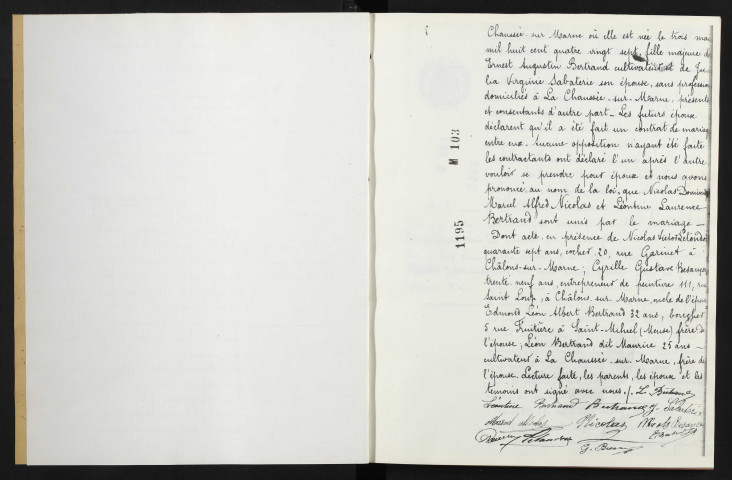 Chaussée-sur-Marne où elle est née le trois ma
mil huit cent quatre vingt sept, fille majeure d
Ernest Augustin Bertrand cultivateur et de Ju
lia Virginie Sabaterie son épouse, sans profession
domiciliés à La Chaussée-sur-Marne, présents
et consentants d'autre part - Les futurs époux
déclarent qu'il a été fait un contrat de mariag
entre eux. Aucune opposition n'ayant été faite
les contractants ont déclaré l'un après l'autre
vouloir se prendre pour époux et nous avons
prononcé, au nom de la loi, que Nicolas Domini
Marcel Alfred Nicolas et Léontine Laurence
Bertrand sont unis par le mariage -
Dont acte, en présence de Nicolas Victor
quarante sept ans, cocher, 20, rue Garinet à
Châlons-sur-Marne; Cyrille Gustave Besançon
trente neuf ans, entrepreneur de peinture 111, rue
Saint Loup, à Châlons-sur-Marne, oncle de l'épou
Edmond Léon Albert Bertrand 32 ans, bourrelier
5 rue Fruitière à Saint-Mihiel (Meuse) frère de
l'épouse; Léon Bertrand dit Maurice 25 ans -
cultivateur à La Chaussée-sur-Marne, frère de
l'épouse. Lecture faite, les parents, les époux et les
témoins ont signé avec nous./. L. Bertrand
Léontine Bertrand Bertrand
Marcel Nicolas Nicolas Besançon
M 103
1195